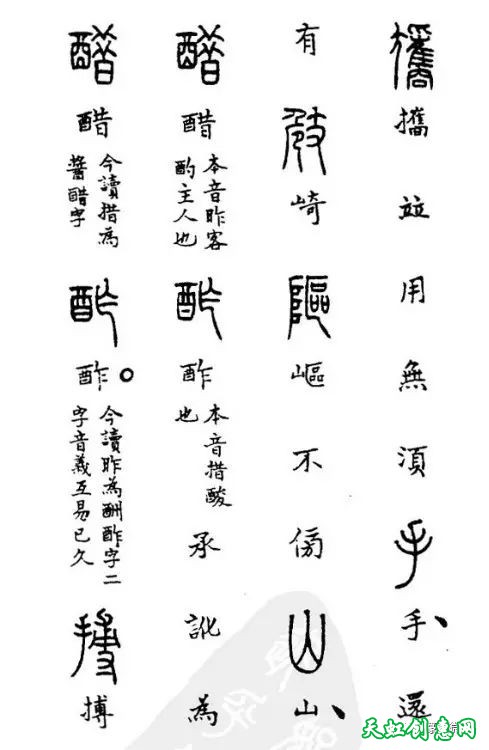 攜攜竝用無湏手手、還
有崎嶇不傍山山、
醋醋本音昨客
酌主人也
酢酢本音措酸
也
承訛為
醋醋今讀措為
醬醋字
酢酢。今讀昨為酬酢字二
字音義互易已久
搏搏
天虹创意网